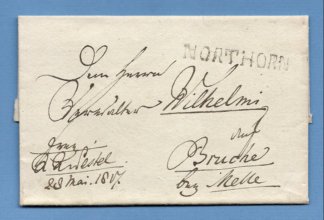 NORTHORN
Dem Herrn
Verwalter Wilhelmi
auf
Bruche
bey Melle
28 Mai. 1817.